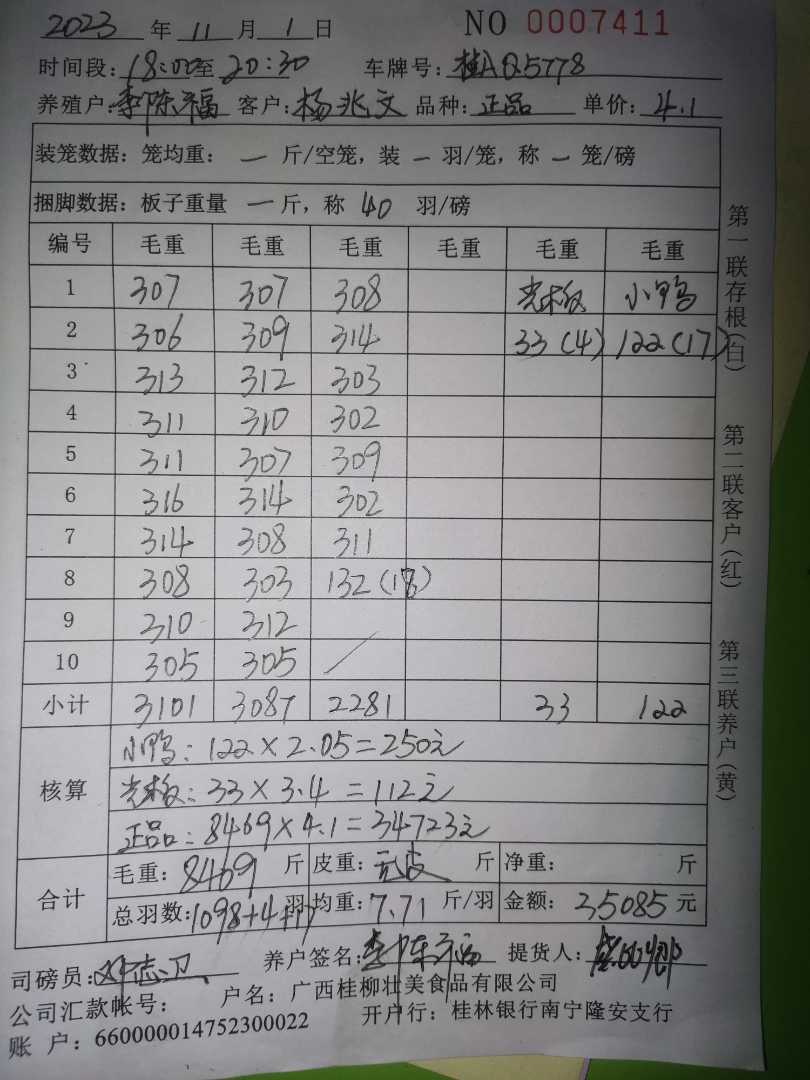 2023 年 11 月 1 日 NO 0007411
时间段: 18:00至 20:30 车牌号: 桂AQ5778
养殖户: 李陈福 客户: 杨兆文 品种: 正品 单价: 4.1
装笼数据: 笼均重: 一 斤/空笼, 装 一 羽/笼, 称 一 笼/磅
捆脚数据: 板子重量 一 斤, 称 40 羽/磅
编号 毛重 毛重 毛重 毛重 毛重 毛重
1 307 307 308 光板 小鸭
2 306 309 314 33(4) 122(17)
3 313 312 303
4 311 310 302
5 311 307 309
6 316 314 302
7 314 308 311
8 308 303 132(18)
9 310 312
10 305 305 /
小计 3101 3087 2281 33 122
核算
小鸭: 122×2.05=250元
光板: 33×3.4=112元
正品: 8469×4.1=34723元
合计
毛重: 8469 斤 皮重: 元皮 斤 净重: 斤
总羽数: 1098+4+17 羽 均重: 7.71 斤/羽 金额: 35085 元
司磅员: 养户签名: 李陈福 提货人:
公司汇款帐号: 户名: 广西桂柳壮美食品有限公司
账 户: 660000014752300022 开户行: 桂林银行南宁隆安支行
第一联存根(白)
第二联客户(红)
第三联养户(黄)